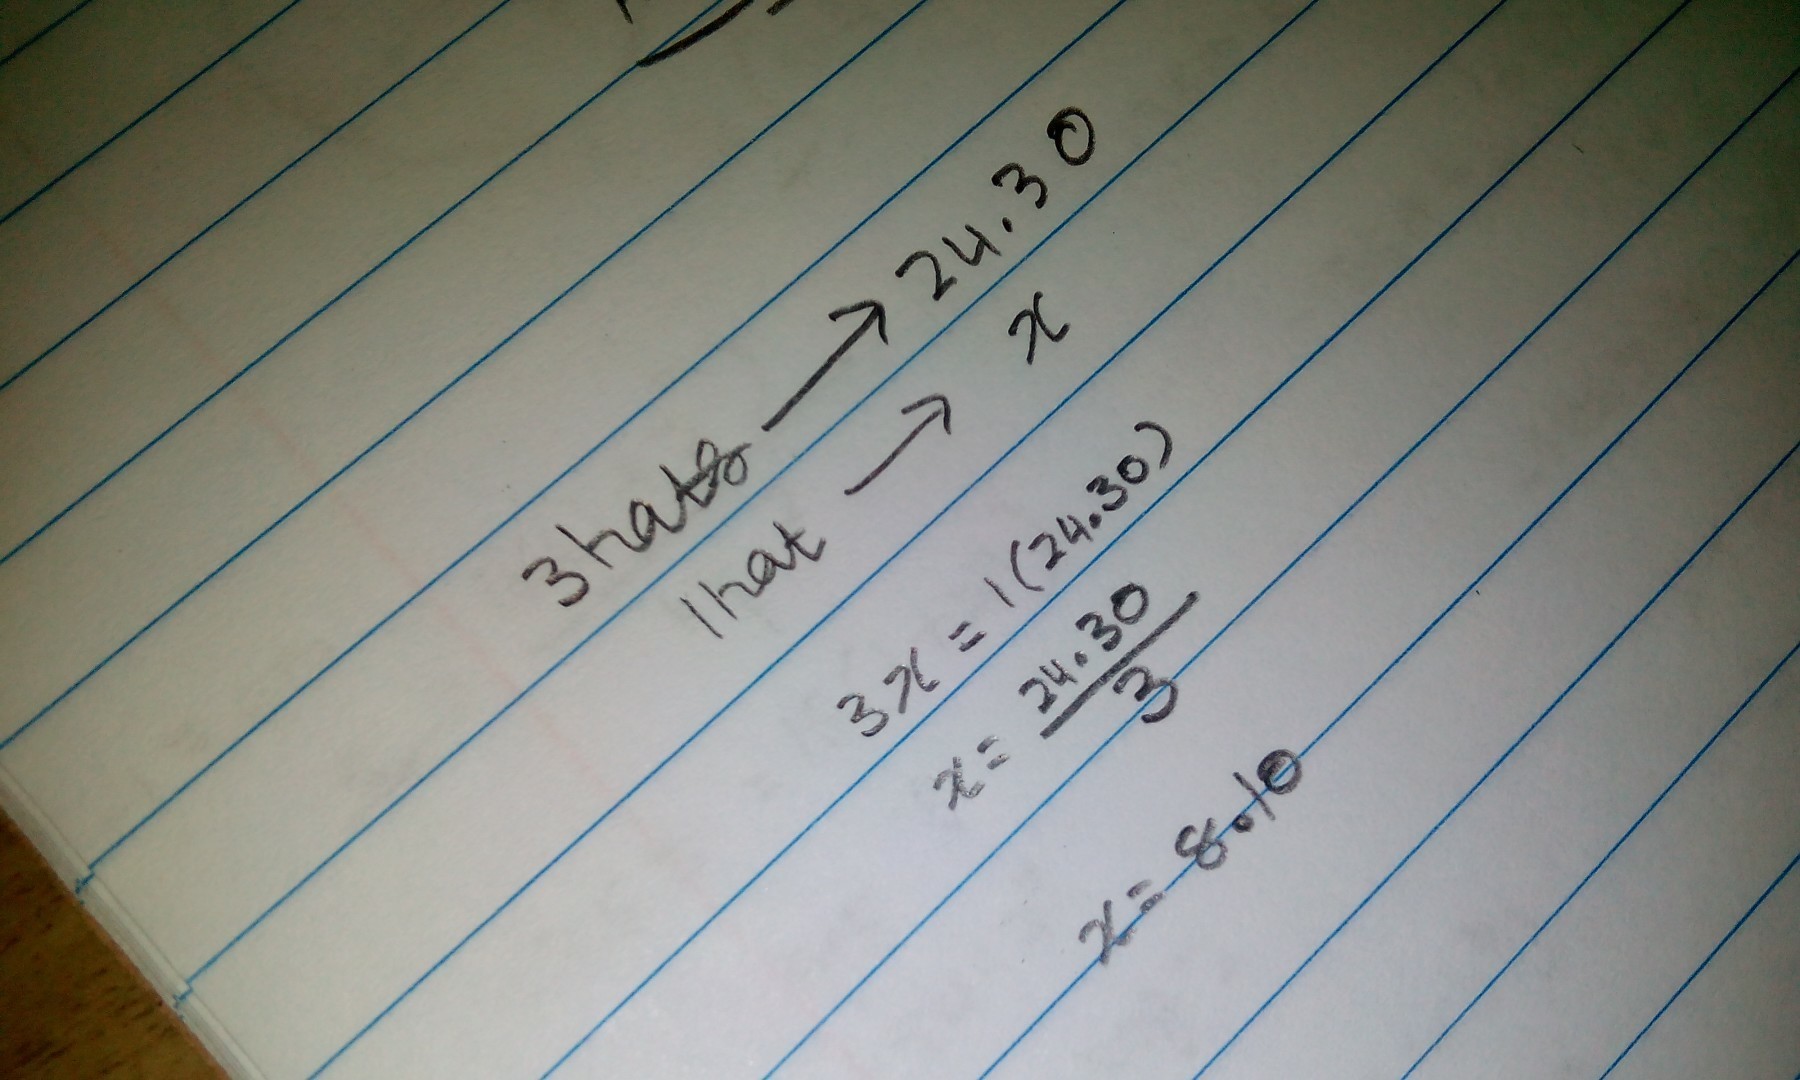 3 hats → 24.30
1 hat → x
3x = 1(24.30)
x = 24.30/3
x = 8.10